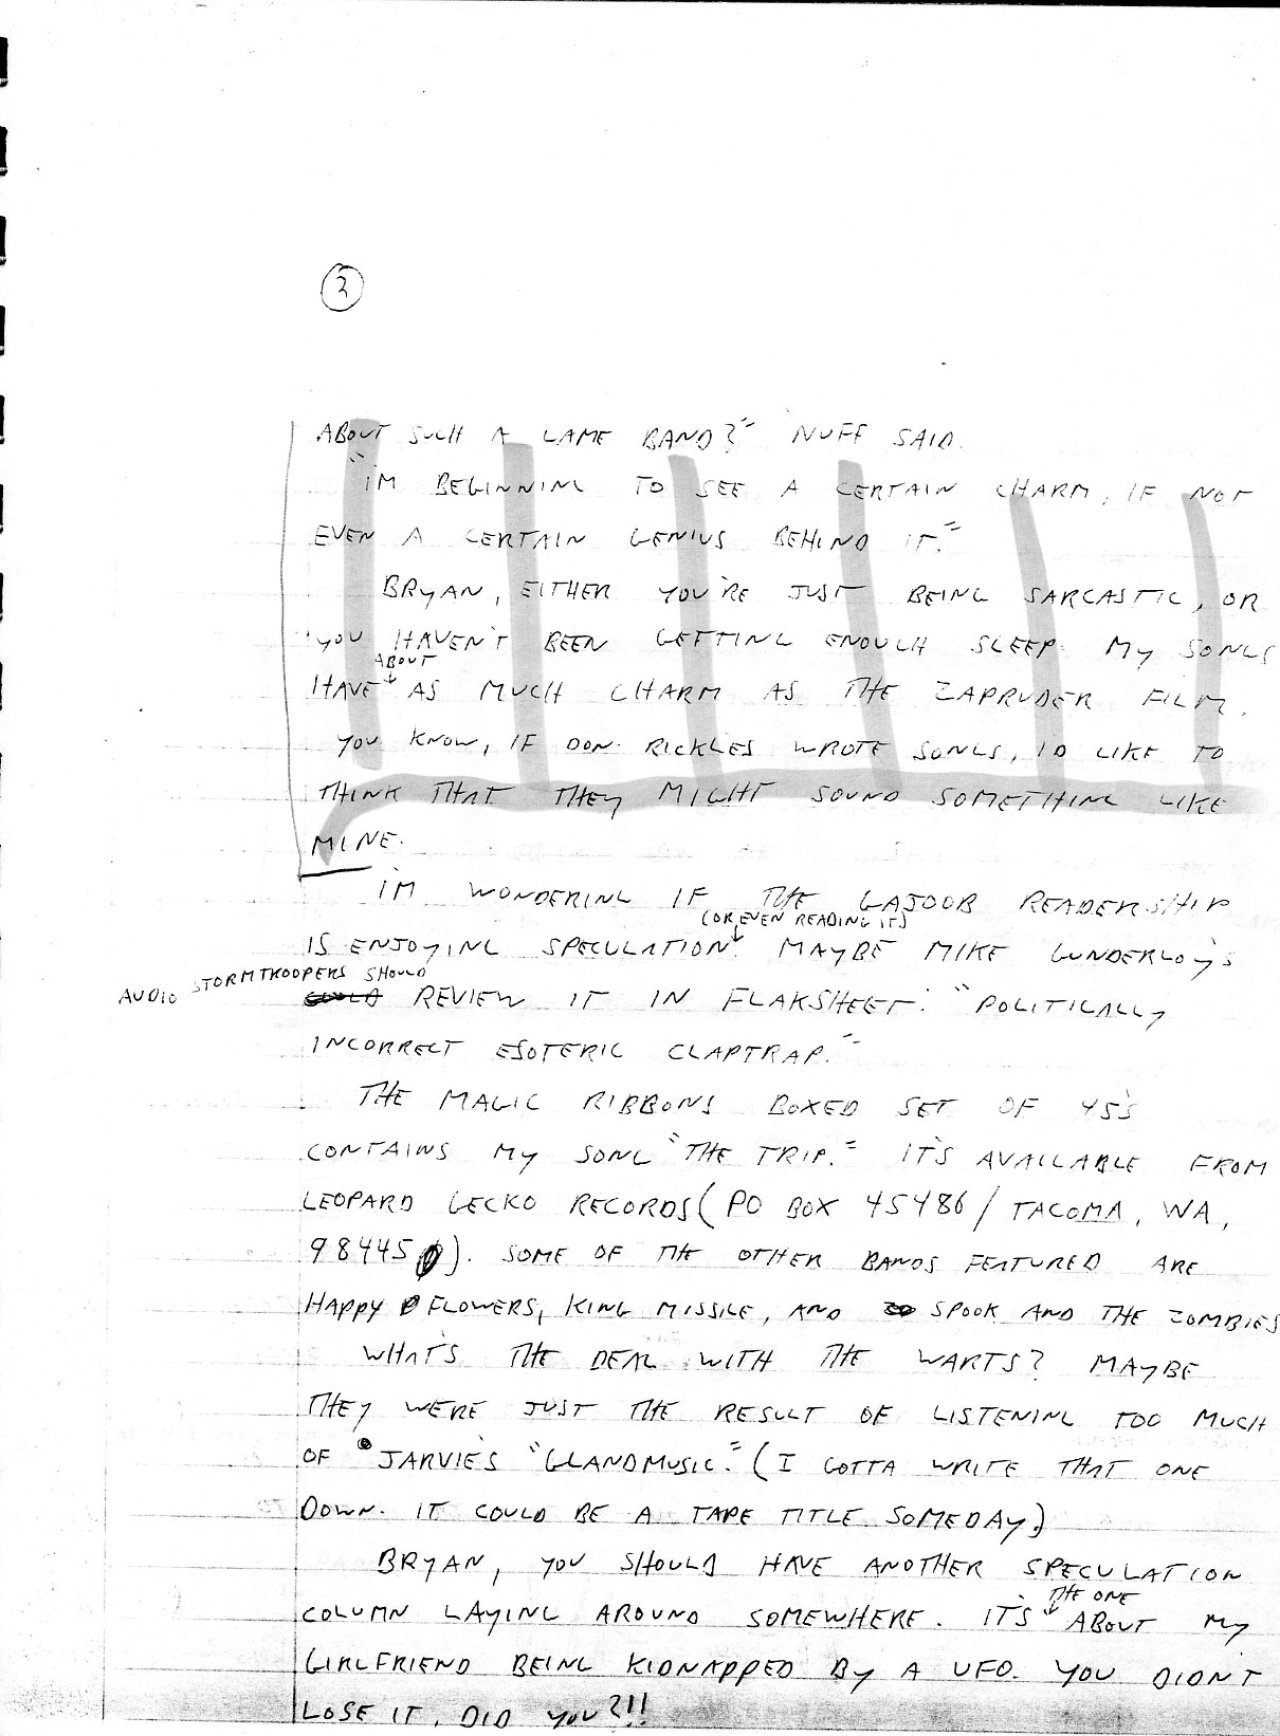 3
ABOUT SUCH A LAME BAND?" NUFF SAID.
"I'M BEGINNING TO SEE A CERTAIN CHARM, IF NOT
EVEN A CERTAIN GENIUS BEHIND IT."
BRYAN, EITHER YOU'RE JUST BEING SARCASTIC, OR
YOU HAVEN'T BEEN GETTING ENOUGH SLEEP. MY SONGS
ABOUT
HAVE AS MUCH CHARM AS THE ZAPRUDER FILM.
YOU KNOW, IF DON RICKLES WROTE SONGS, I'D LIKE TO
THINK THAT THEY MIGHT SOUND SOMETHING LIKE
MINE.
I'M WONDERING IF THE GAJOOB READERSHIP
(OR EVEN READING IT)
IS ENJOYING SPECULATION. MAYBE MIKE GUNDERLOY'S
AUDIO STORMTROOPERS SHOULD
REVIEW IT IN FLAKSHEET: "POLITICALLY
INCORRECT ESOTERIC CLAPTRAP."
THE MAGIC RIBBONS BOXED SET OF 45'S
CONTAINS MY SONG "THE TRIP." IT'S AVAILABLE FROM
LEOPARD GECKO RECORDS (PO BOX 45486/TACOMA, WA,
98445). SOME OF THE OTHER BANDS FEATURED ARE
HAPPY FLOWERS, KING MISSILE, AND SPOOK AND THE ZOMBIES
WHAT'S THE DEAL WITH THE WARTS? MAYBE
THEY WERE JUST THE RESULT OF LISTENING TOO MUCH
OF JARVIE'S "GLANDMUSIC." (I GOTTA WRITE THAT ONE
DOWN. IT COULD BE A TAPE TITLE SOMEDAY.)
BRYAN, YOU SHOULD HAVE ANOTHER SPECULATION
THE ONE
COLUMN LAYING AROUND SOMEWHERE. IT'S ABOUT MY
GIRLFRIEND BEING KIDNAPPED BY A UFO. YOU DIDN'T
LOSE IT, DID YOU?!!